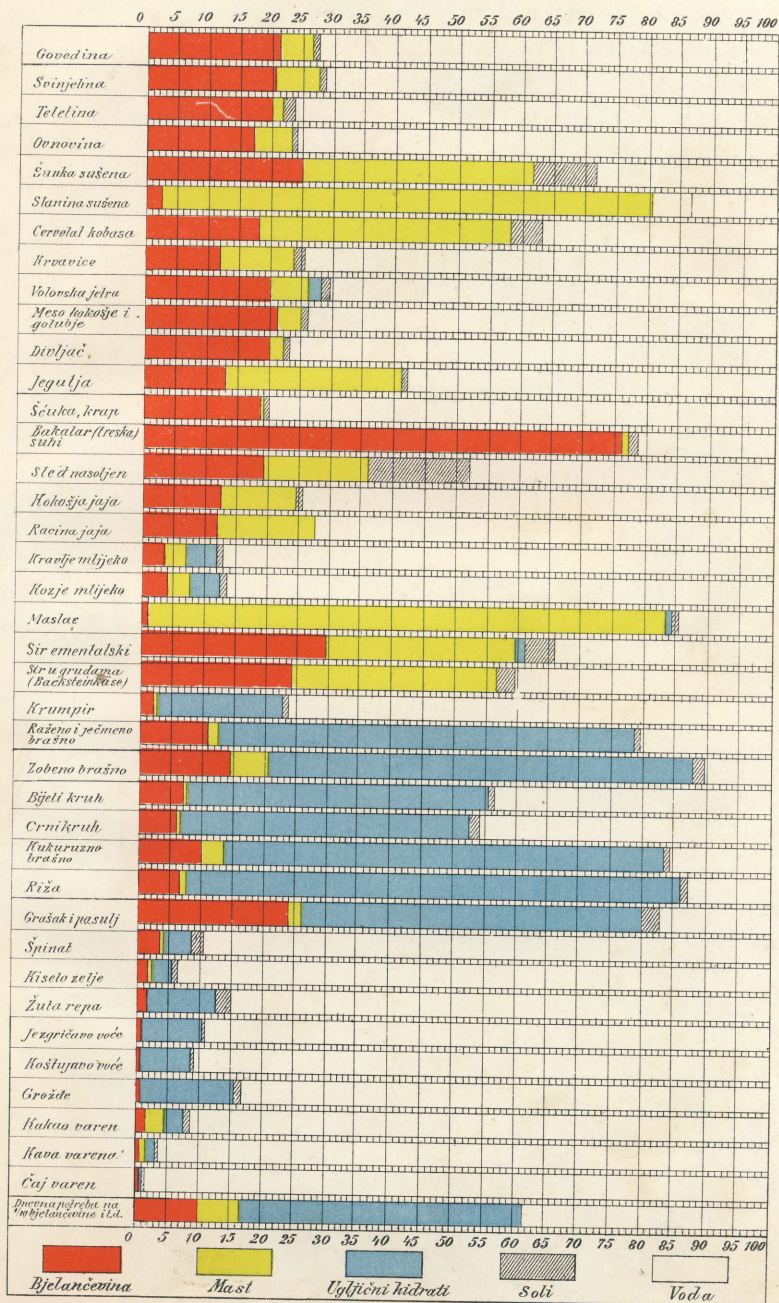 0 5 10 15 20 25 30 35 40 45 50 55 60 65 70 75 80 85 90 95 100
Govedina
Svinjetina
Teletina
Ovnovina
Šunka sušena
Slanina sušena
Cervelat kobasa
Krvavice
Volovska jetra
Meso kokošje i
golubje
Divljač
Jegulja
Šćuka, krap
Bakalar (treska)
suhi
Sleđ nasoljen
Kokošja jaja
Racina jaja
Kravlje mlijeko
Kozje mlijeko
Maslac
Sir ementalski
Sir u grudama
(Backsteinkäse)
Krumpir
Raženo i ječmeno
brašno
Zobeno brašno
Bijeli kruh
Crni kruh
Kukuruzno
brašno
Riža
Grašak i pasulj
Špinat
Kiselo zelje
Žuta repa
Jezgričavo voće
Koštujavo voće
Grožđe
Kakao varen
Kava varena
Čaj varen
Dnevna potreba na
bjelančevine i.t.d.
0 5 10 15 20 25 30 35 40 45 50 55 60 65 70 75 80 85 90 95 100
Bjelančevina Mast Ugljični hidrati Soli Voda